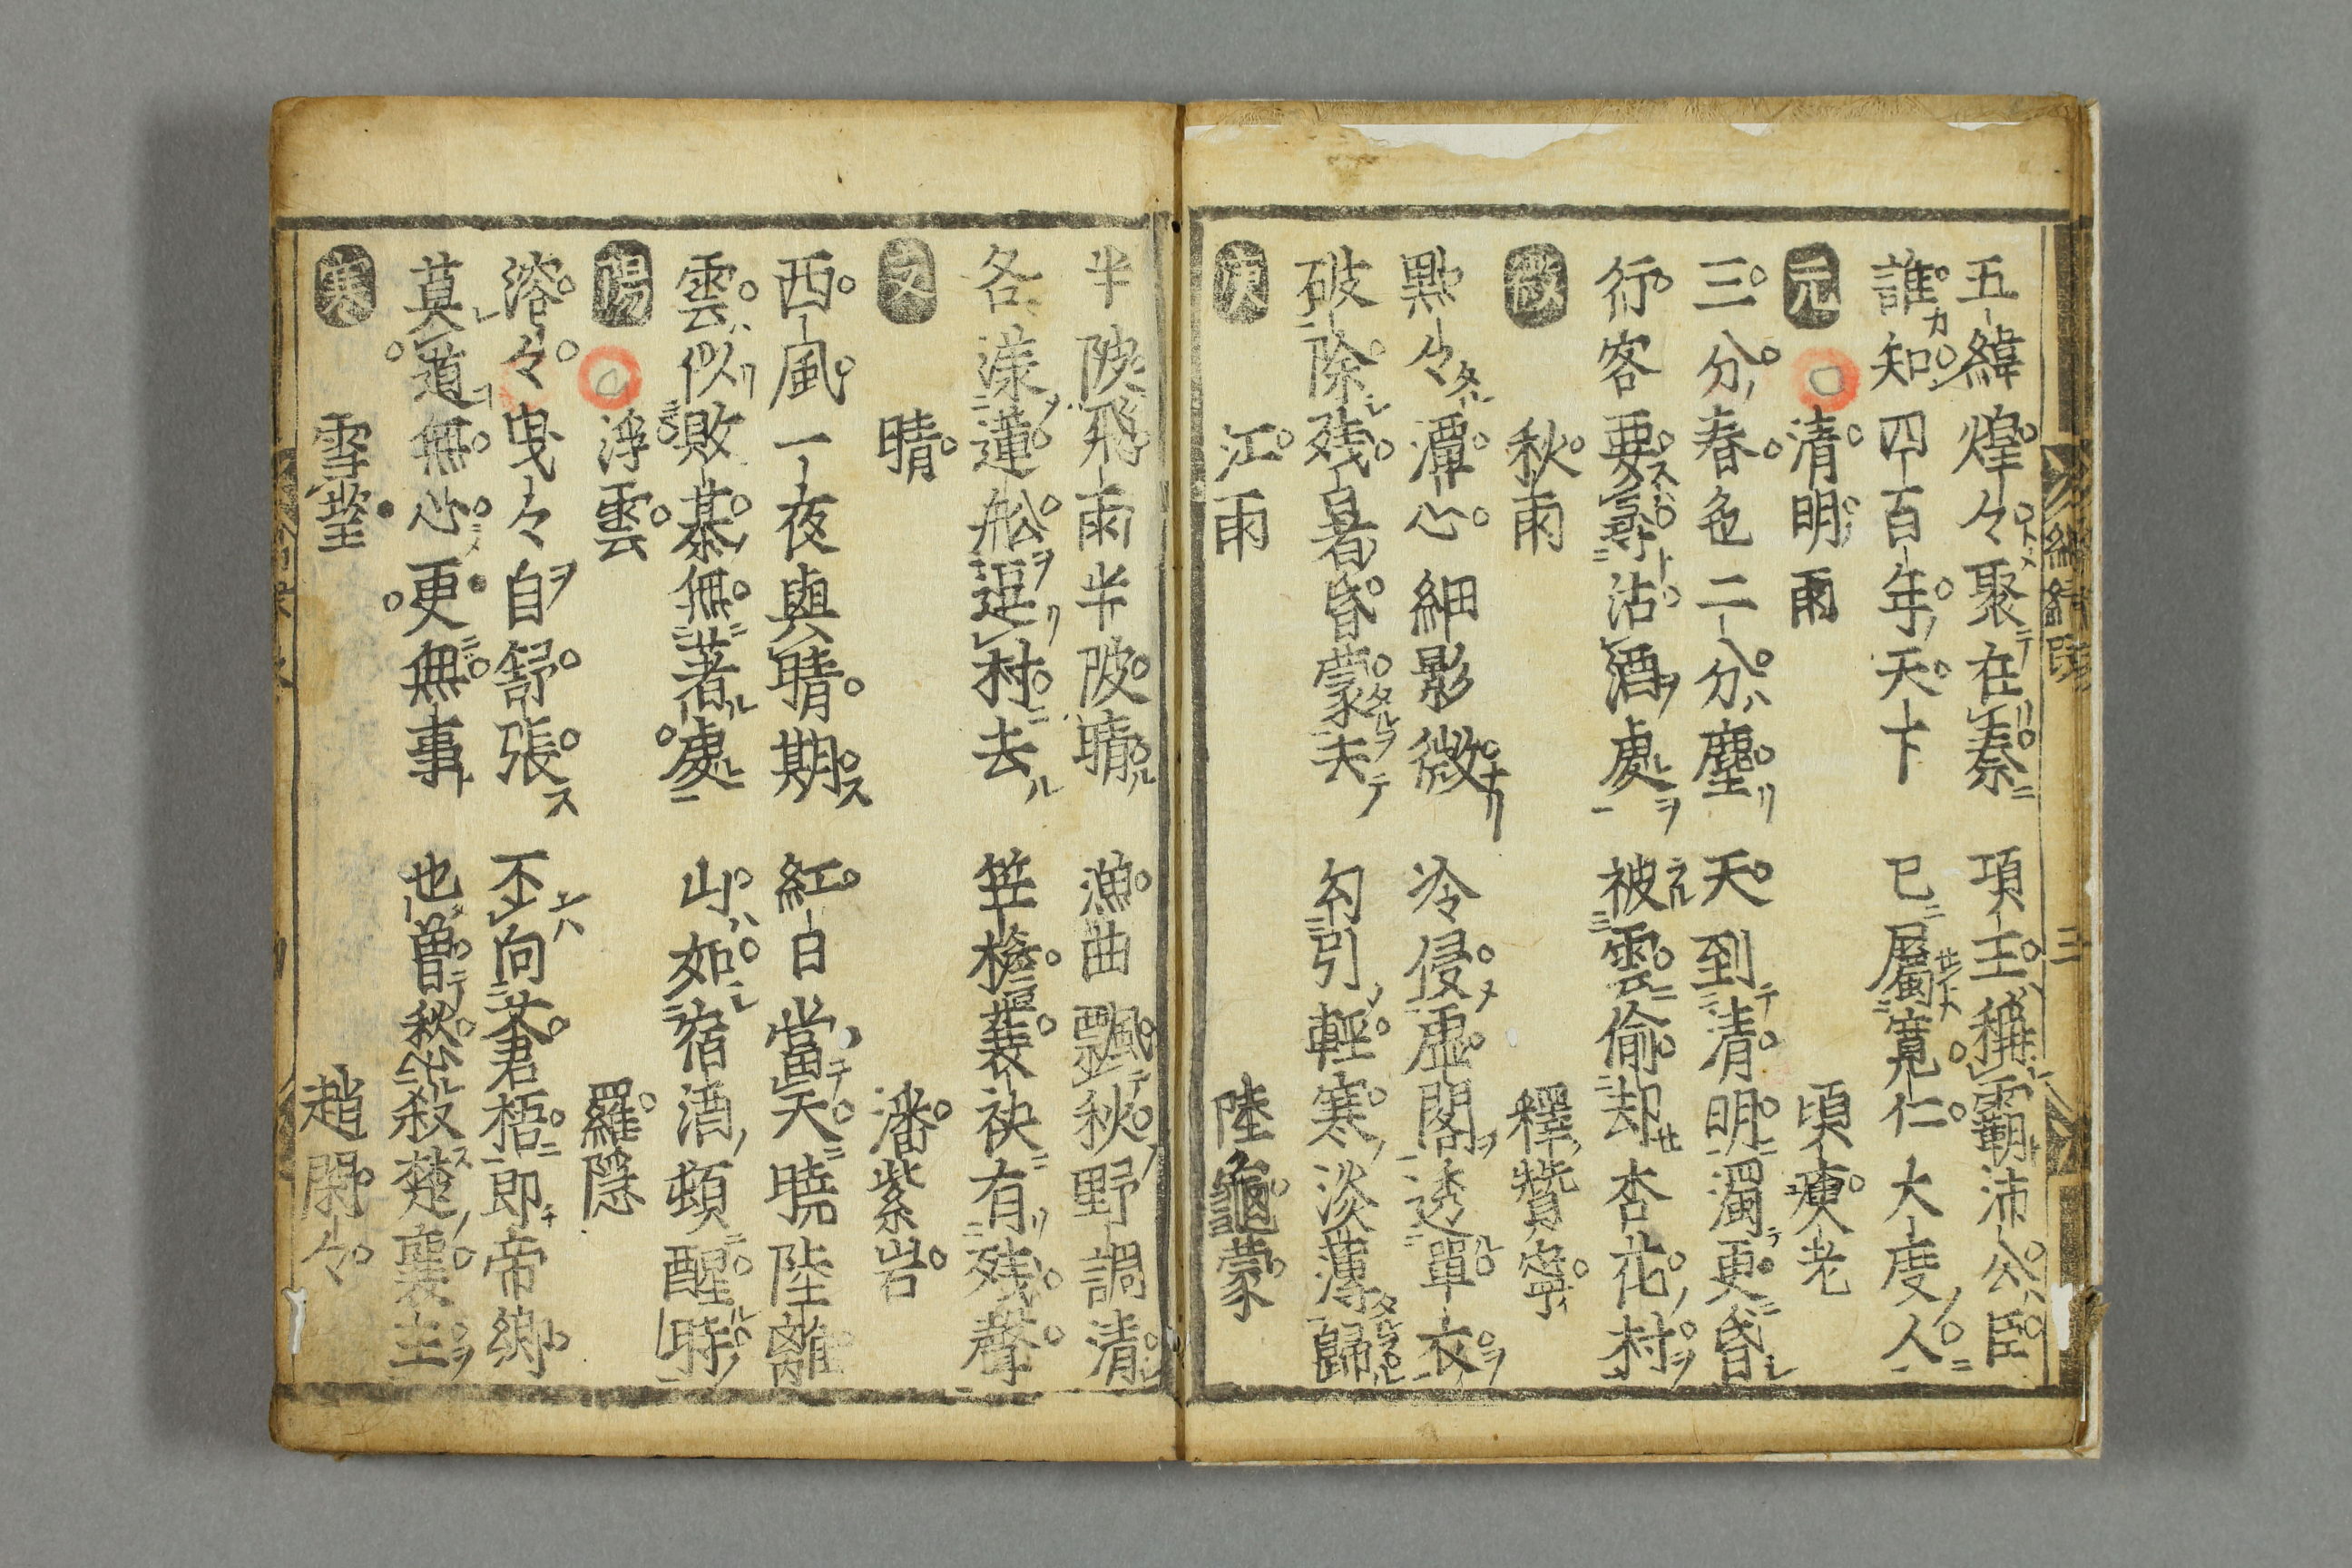 五緯煌々聚在秦 項王稱霸沛公臣
誰知四百年天下 已屬寬仁大度人
元 清明雨 頃瘐老
三分春色二分塵 天到清明濁更昏
行客要尋沽酒處 被雲偷却杏花村
微 秋雨 釋贊寧
點々潭心細影微 冷侵虛閣透單衣
破除残暑昏蒙去 勾引輕寒淡薄歸
庚 江雨 陸龜蒙
半陂飛雨半陂晴 漁曲飄秋野調清
各漾蓮舩逗村去 笠檐蓑袂有残聲
文 晴 潘紫岩
西風一夜與晴期 紅日當天曉陸離
雲似敗棊無著處 山如宿酒頓醒時
陽 浮雲 羅隱
溶々曳々自舒張 不向蒼梧即帝鄉
莫道無心更無事 也曽愁殺楚襄主
寒 雪望 趙閑々